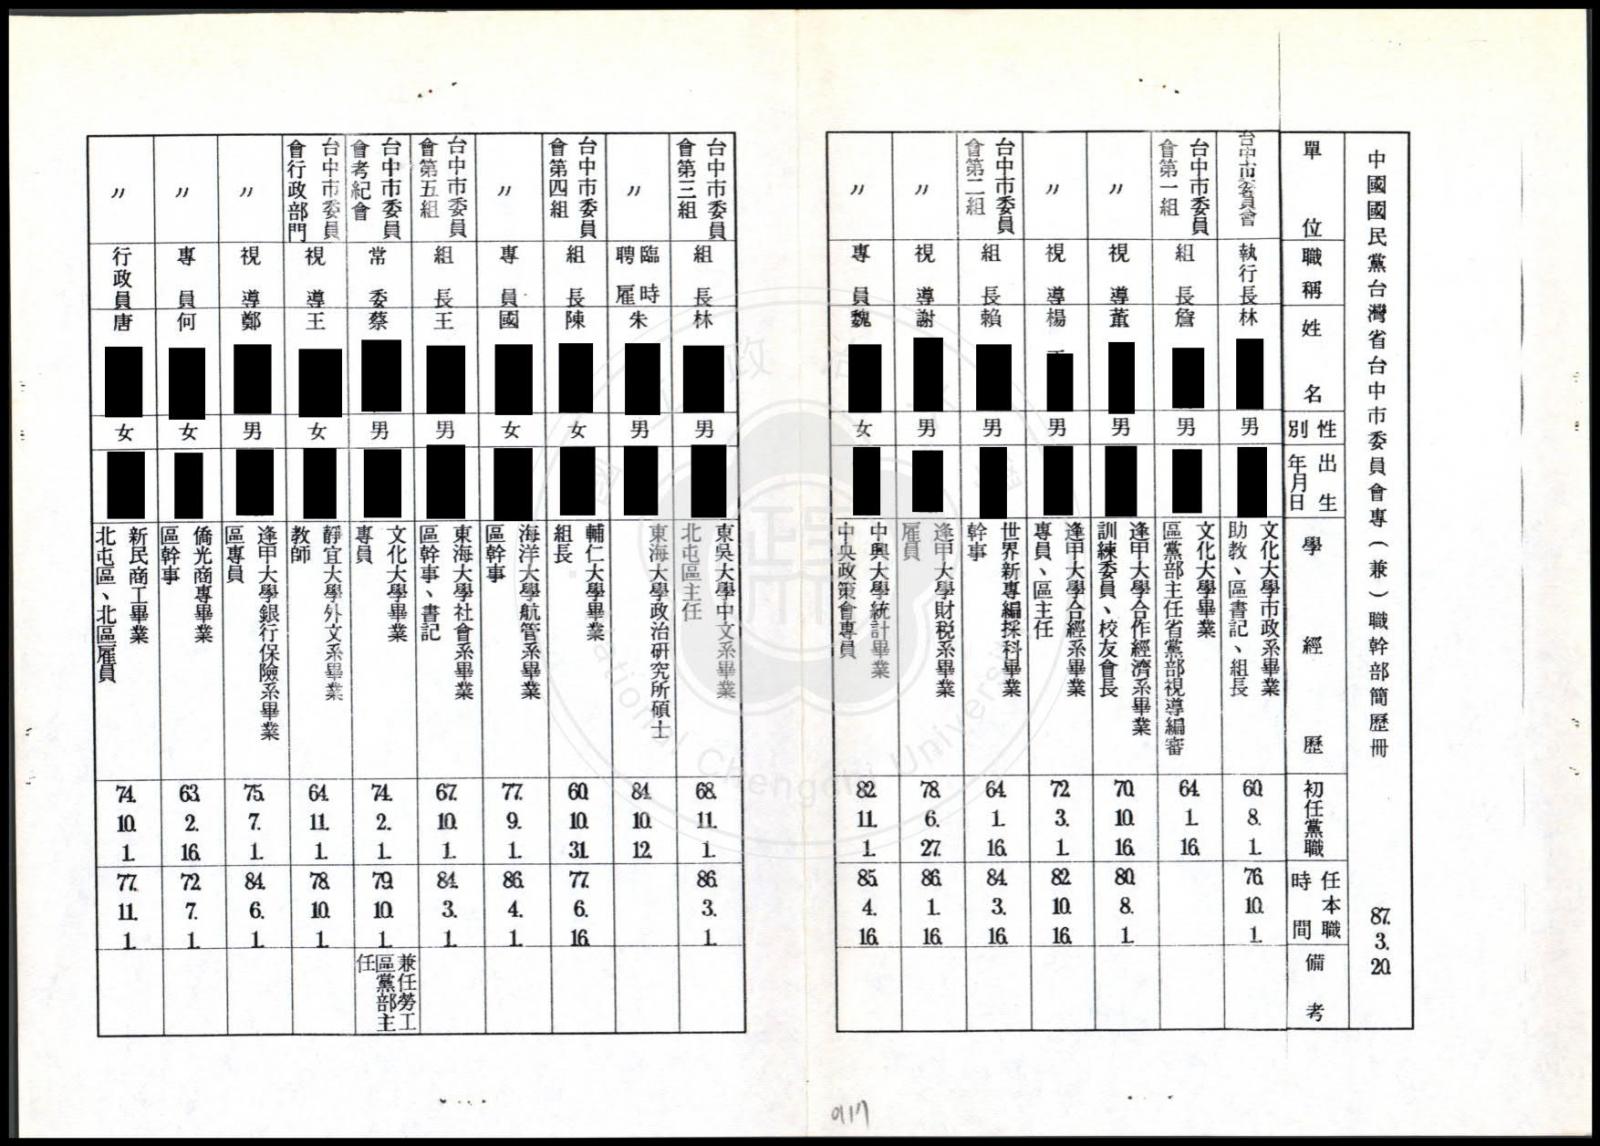 中國國民黨台灣省台中市委員會專（兼）職幹部簡歷冊 87. 3. 20.
單位 職稱 姓名 性別 出生年月日 學經歷 初任黨職 任本職時間 備考
台中市委員會 執行長 林 男 文化大學市政系畢業 助教、區書記、組長 60. 8. 1. 76. 10. 1.
台中市委員會第一組 組長 詹 男 文化大學畢業 區黨部主任省黨部視導編審 64. 1. 16.
〃 視導 董 男 逢甲大學合作經濟系畢業 訓練委員、校友會長 70. 10. 16. 80. 8. 1.
〃 視導 楊 男 逢甲大學合經系畢業 專員、區主任 72. 3. 1. 82. 10. 16.
台中市委員會第二組 組長 賴 男 世界新專編採科畢業 幹事 64. 1. 16. 84. 3. 16.
〃 視導 謝 男 逢甲大學財稅系畢業 雇員 78. 6. 27. 86. 1. 16.
〃 專員 魏 女 中興大學統計畢業 中央政策會專員 82. 11. 1. 85. 4. 16.
台中市委員會第三組 組長 林 男 東吳大學中文系畢業 北屯區主任 68. 11. 1. 86. 3. 1.
〃 臨時聘雇 朱 男 東海大學政治研究所碩士 84. 10. 12.
台中市委員會第四組 組長 陳 女 輔仁大學畢業 組長 60. 10. 31. 77. 6. 16.
〃 專員 國 女 海洋大學航管系畢業 區幹事 77. 9. 1. 86. 4. 1.
台中市委員會第五組 組長 王 男 東海大學社會系畢業 區幹事、書記 67. 10. 1. 84. 3. 1.
台中市委員會考紀會 常委 蔡 男 文化大學畢業 專員 74. 2. 1. 79. 10. 1. 兼任勞工區黨部主任
台中市委員會行政部門 視導 王 女 靜宜大學外文系畢業 教師 64. 11. 1. 78. 10. 1.
〃 視導 鄭 男 逢甲大學銀行保險系畢業 區專員 75. 7. 1. 84. 6. 1.
〃 專員 何 女 僑光商專畢業 區幹事 63. 2. 16. 72. 7. 1.
〃 行政員 唐 女 新民商工畢業 北屯區、北區雇員 74. 10. 1. 77. 11. 1.
National Chengchi University